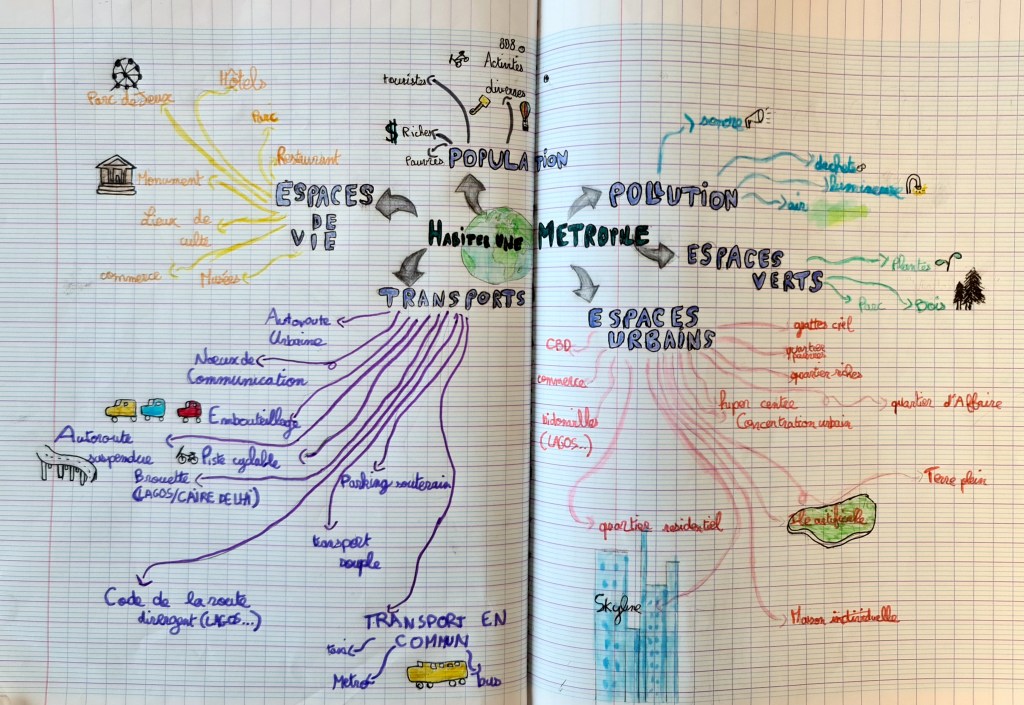 HABITER UNE METROPOLE
POPULATION
touristes
Activités
diverses
$ Riches
Pauvres
ESPACES
DE
VIE
Parc de Jeux
Hôtels
Parc
Restaurant
Monument
Lieux de
culte
commerce
Musées
TRANSPORTS
Autoroute
Urbaine
Noeux de
Communication
Embouteillage
Autoroute
suspendue
Piste cyclable
Brouette
(LAGOS/CAIRE DELHI)
Parking souterain
transport
souple
Code de la route
divergent (LAGOS...)
TRANSPORT EN
COMMUN
taxi
Metro
bus
POLLUTION
sonore
dechets
lumineuse
air
ESPACES
VERTS
Plantes
Parc
Bois
ESPACES
URBAINS
CBD
commerce
bidonvilles
(LAGOS...)
grattes ciel
quartier
pauvres
quartier riches
hyper centre
Concentration urbain
quartier d'Affaire
Terre plein
île artificielle
quartier residentiel
Skyline
Maison individuelle